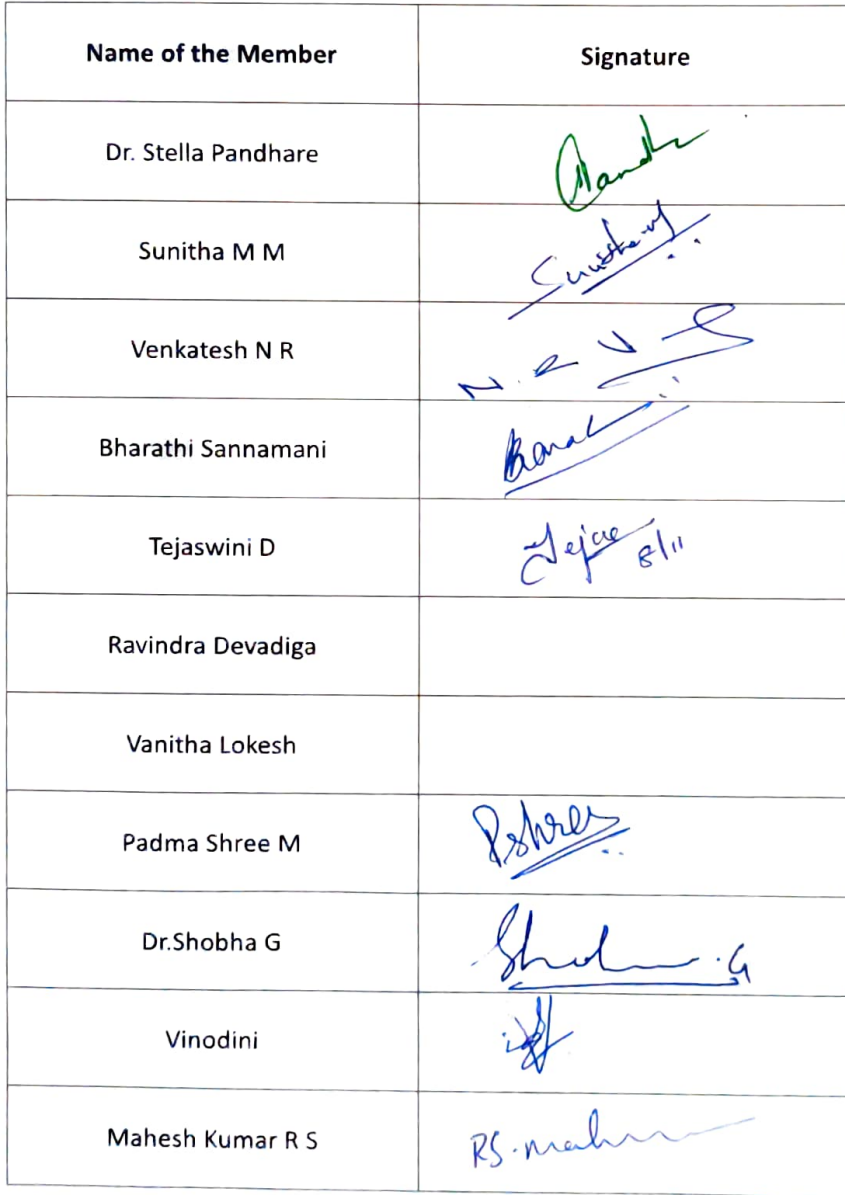 Name of the Member Signature
Dr. Stella Pandhare
Sunitha M M
Venkatesh N R N. R V
Bharathi Sannamani
Tejaswini D Tejas 8/11
Ravindra Devadiga
Vanitha Lokesh
Padma Shree M Pshree
Dr.Shobha G
Vinodini
Mahesh Kumar R S RS.